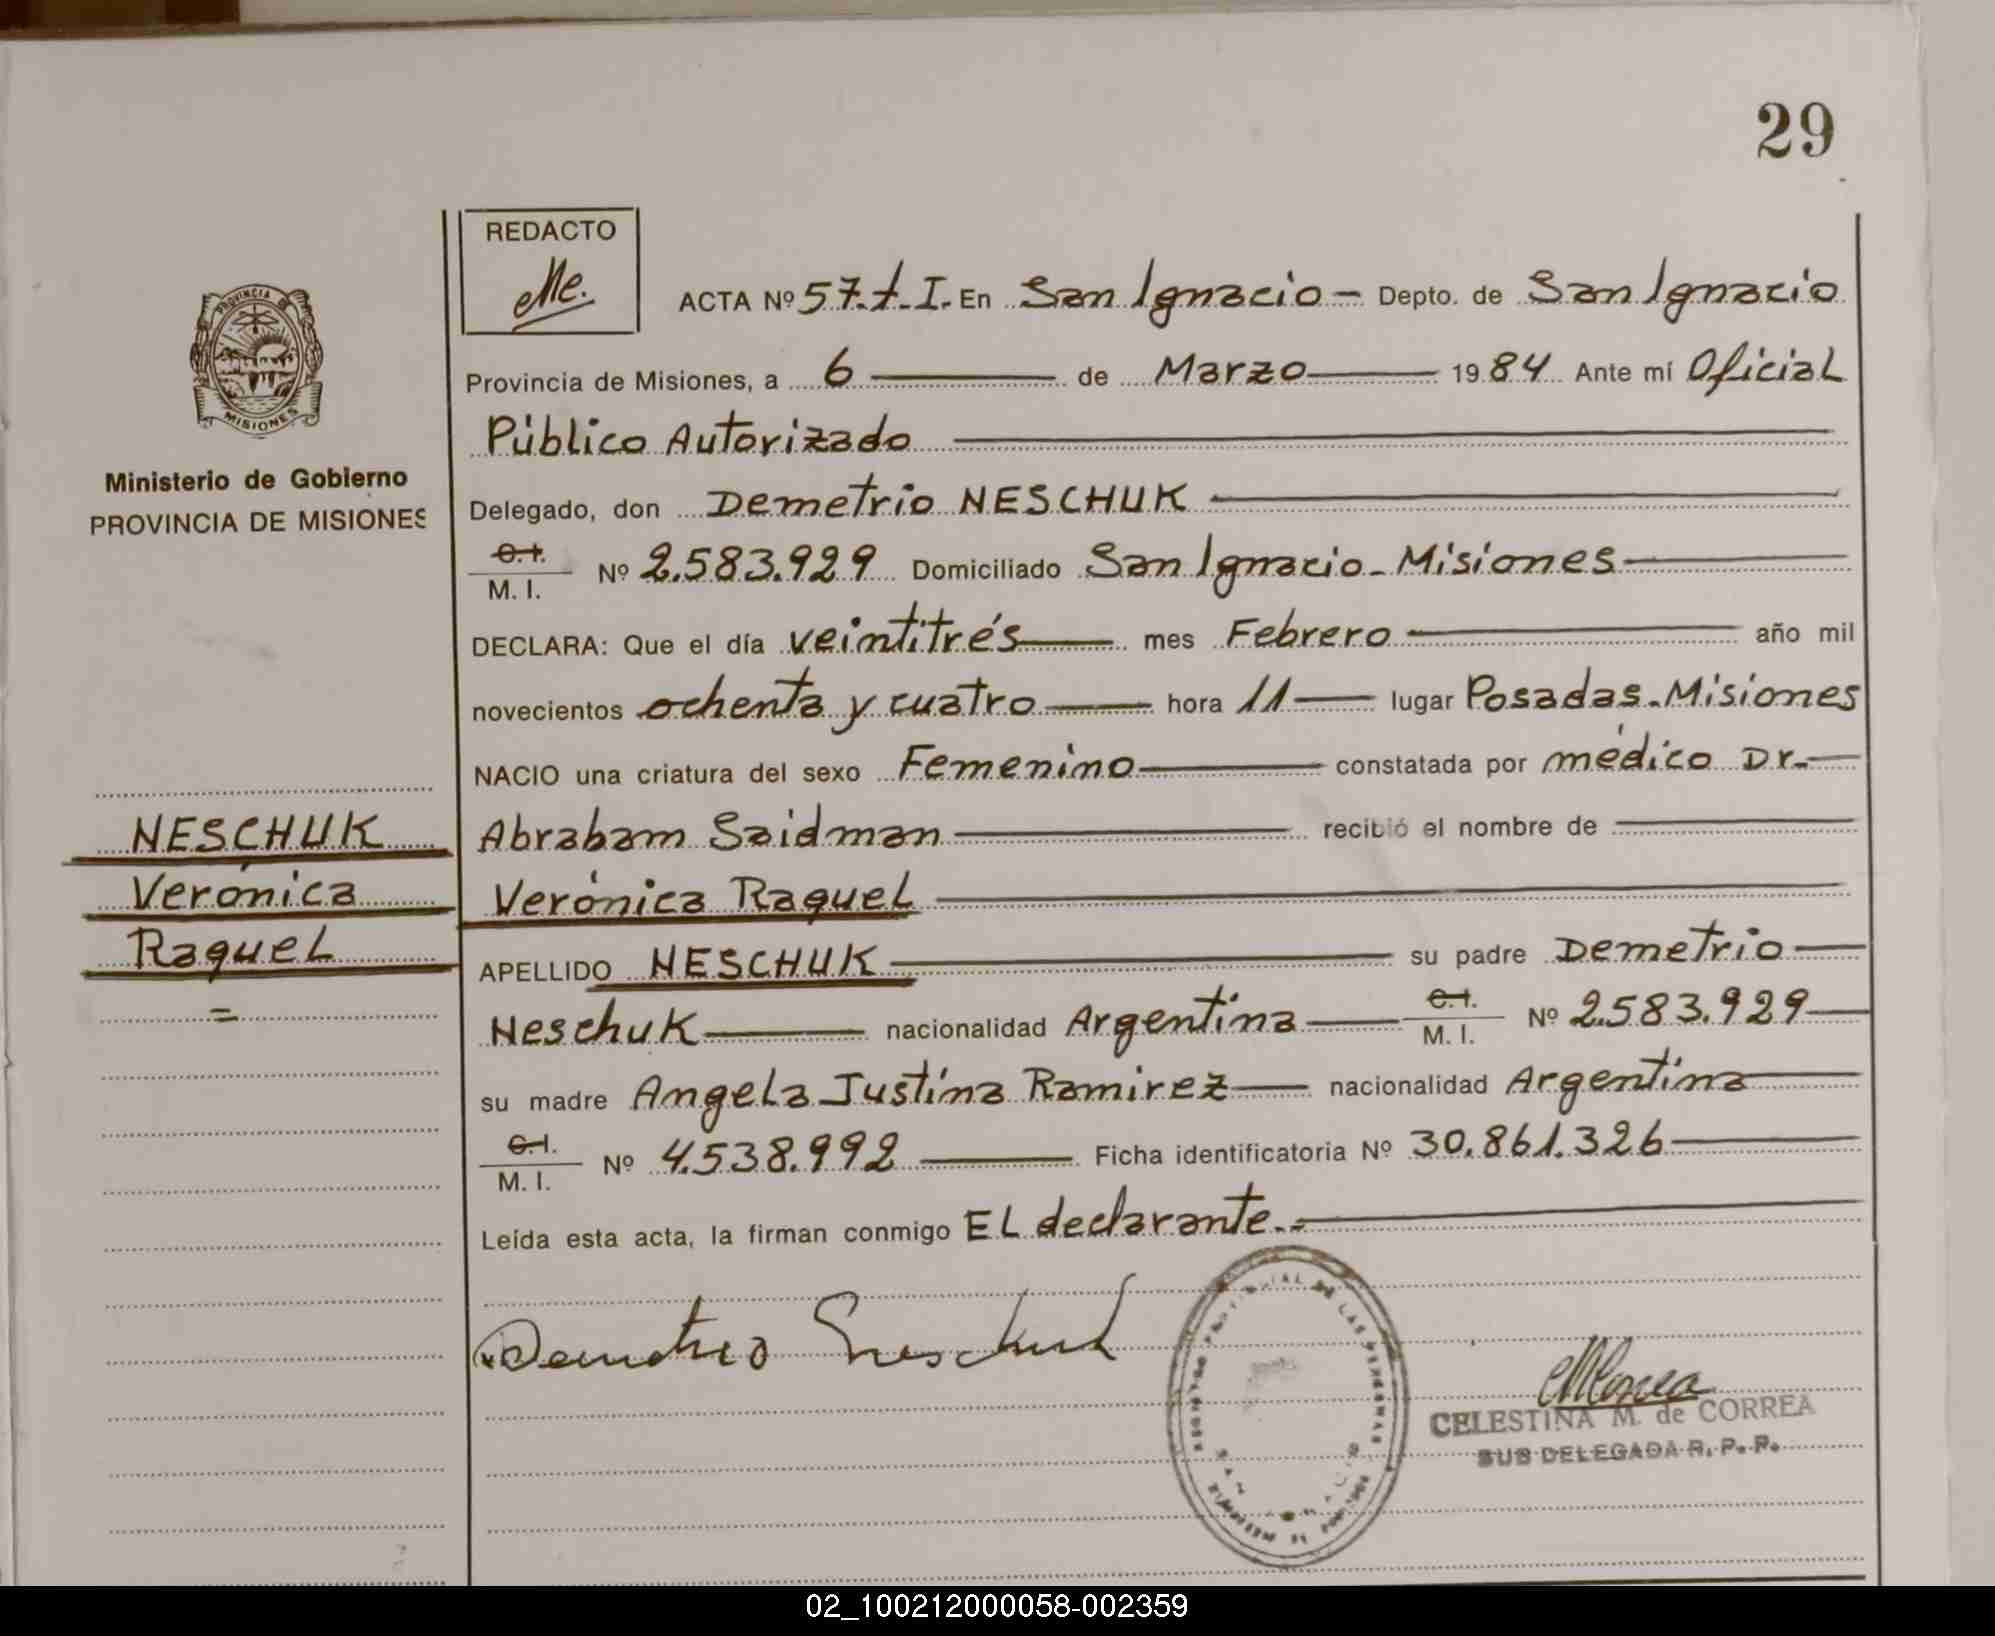 29
REDACTO
ACTA Nº 57.-t.-I. En San Ignacio - Depto. de San Ignacio
Provincia de Misiones, a 6 de Marzo 1984 Ante mí Oficial
Público Autorizado
Delegado, don Demetrio NESCHUK
C.I.
M. I. Nº 2.583.929 Domiciliado San Ignacio - Misiones
DECLARA: Que el día veintitrés mes Febrero año mil
novecientos ochenta y cuatro hora 11 lugar Posadas-Misiones
NACIO una criatura del sexo Femenino constatada por médico Dr.
Abrabam Saidman recibió el nombre de
Verónica Raquel
APELLIDO NESCHUK su padre Demetrio
Neschuk nacionalidad Argentina C.I.
M. I. Nº 2.583.929
su madre Angela Justina Ramirez nacionalidad Argentina
C.I.
M. I. Nº 4.538.992 Ficha identificatoria Nº 30.861.326
Leída esta acta, la firman conmigo EL declarante.=
Demetrio Neschuk
CELESTINA M. de CORREA
SUB DELEGADA R. P. P.
PROVINCIA DE
MISIONES
Ministerio de Gobierno
PROVINCIA DE MISIONES
NESCHUK
Verónica
Raquel
=
DE LAS PERSONAS
02_100212000058-002359